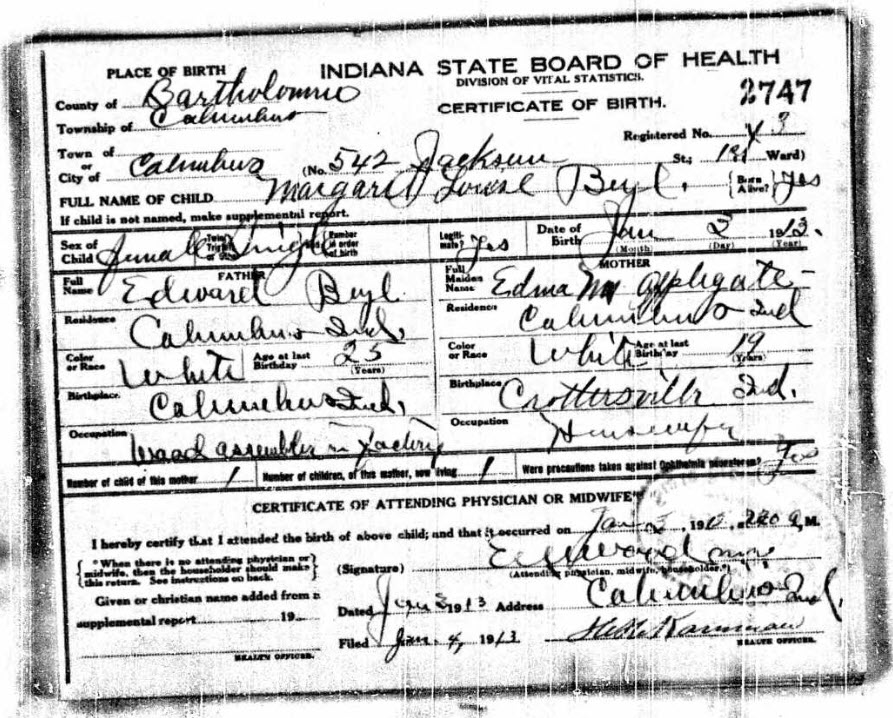 PLACE OF BIRTH
INDIANA STATE BOARD OF HEALTH
DIVISION OF VITAL STATISTICS.
CERTIFICATE OF BIRTH.
2747
County of Bartholomew
Township of Columbus
Registered No. 3
Town of
or
City of Columbus (No. 542 Jackson St.; 1st Ward)
FULL NAME OF CHILD Margaret Louise Beyl. {Born Alive?} Yes
If child is not named, make supplemental report.
Sex of Child Female Twin, Triplet or other Single and Number in order of birth Legitimate? Yes Date of Birth Jan 3 1913.
(Month) (Day) (Year)
FATHER MOTHER
Full Name Edward Beyl Full Maiden Name Edna M Applegate
Residence Columbus Ind. Residence Columbus Ind
Color or Race White Age at last Birthday 25 (Years) Color or Race White Age at last Birthday 19 (Years)
Birthplace Columbus Ind. Birthplace Crothersville Ind.
Occupation Wood assembler in Factory Occupation Housewife
Number of child of this mother 1 Number of children, of this mother, now living 1 Were precautions taken against Ophthalmia neonatorum? Yes
CERTIFICATE OF ATTENDING PHYSICIAN OR MIDWIFE*
I hereby certify that I attended the birth of above child; and that it occurred on Jan 3, 191 M.
{*When there is no attending physician or midwife, then the householder should make this return. See instructions on back.}
(Signature)
(Attending physician, midwife, householder.*)
Given or christian name added from a
supplemental report 19
Dated Jan 3 1913 Address Columbus Ind.
Filed Jan. 4, 1913
HEALTH OFFICER. HEALTH OFFICER.